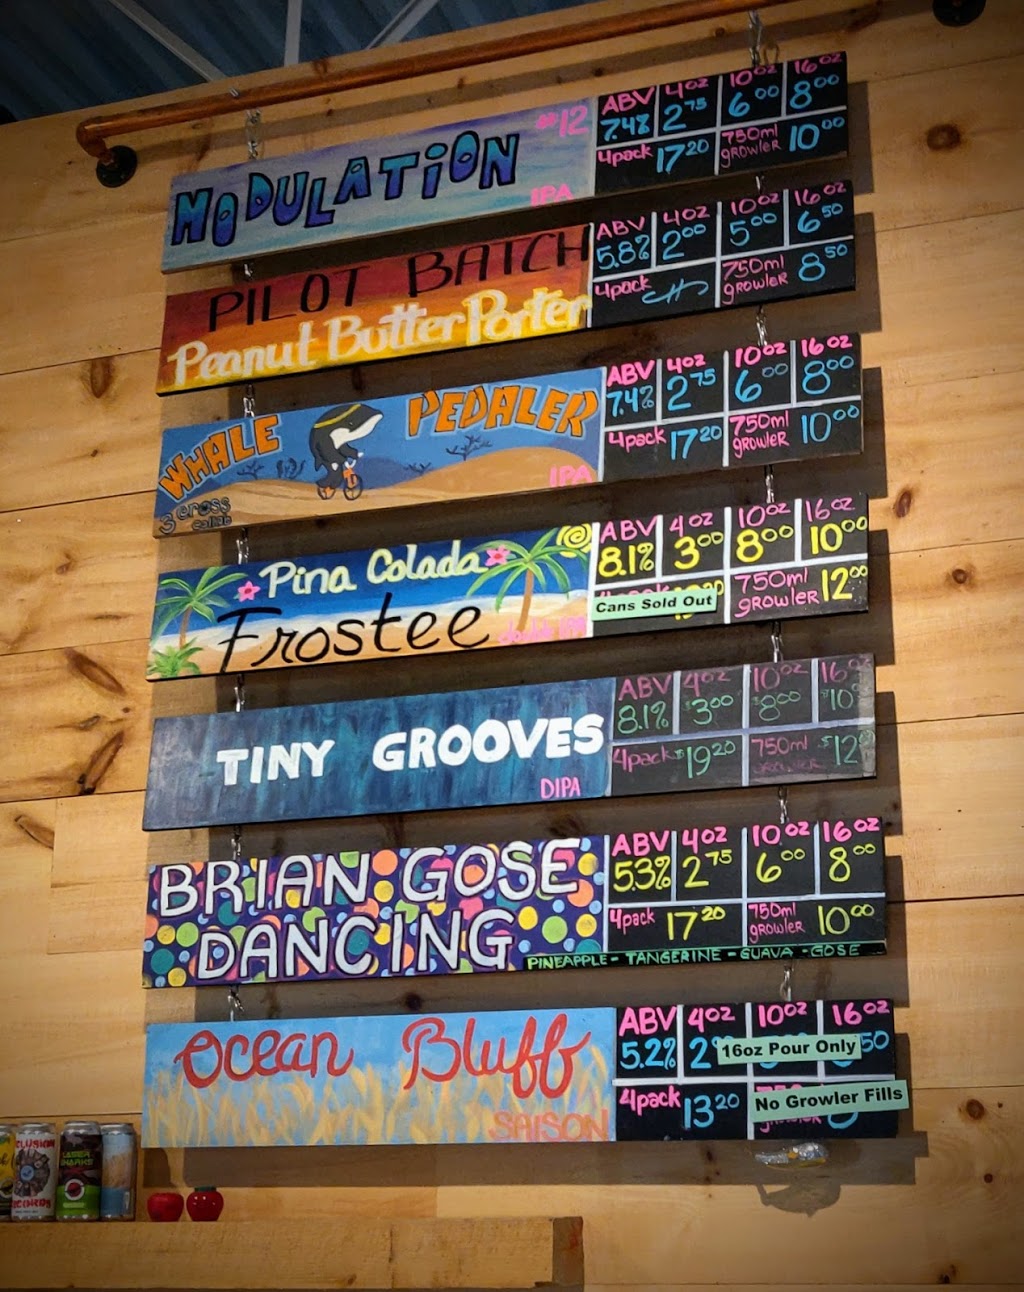 MODULATION
12
IPA
ABV 4oz 10oz 16oz
7.4% 2 75 6 00 8 00
4pack 17 20 750ml growler 10 00
PILOT BATCH
Peanut Butter Porter
ABV 4oz 10oz 16oz
5.8% 2 00 5 00 6 50
4pack 750ml growler 8 50
WHALE PEDALER
3 cross collab
IPA
ABV 4oz 10oz 16oz
7.4% 2 75 6 00 8 00
4pack 17 20 750ml growler 10 00
Pina Colada
Frostee
double IPA
ABV 4oz 10oz 16oz
8.1% 3 00 8 00 10 00
Cans Sold Out 750ml growler 12 00
TINY GROOVES
DIPA
ABV 4oz 10oz 16oz
8.1% $3 00 $8 00 $10
4pack $19 20 750ml growler $12
BRIAN GOSE
DANCING
ABV 4oz 10oz 16oz
5.3% 2 75 6 00 8 00
4pack 17 20 750ml growler 10 00
PINEAPPLE - TANGERINE - GUAVA - GOSE
Ocean Bluff
SAISON
ABV 4oz 10oz 16oz
5.2% 2 16oz Pour Only 50
4pack 13 20 No Growler Fills
LASER SHARKS